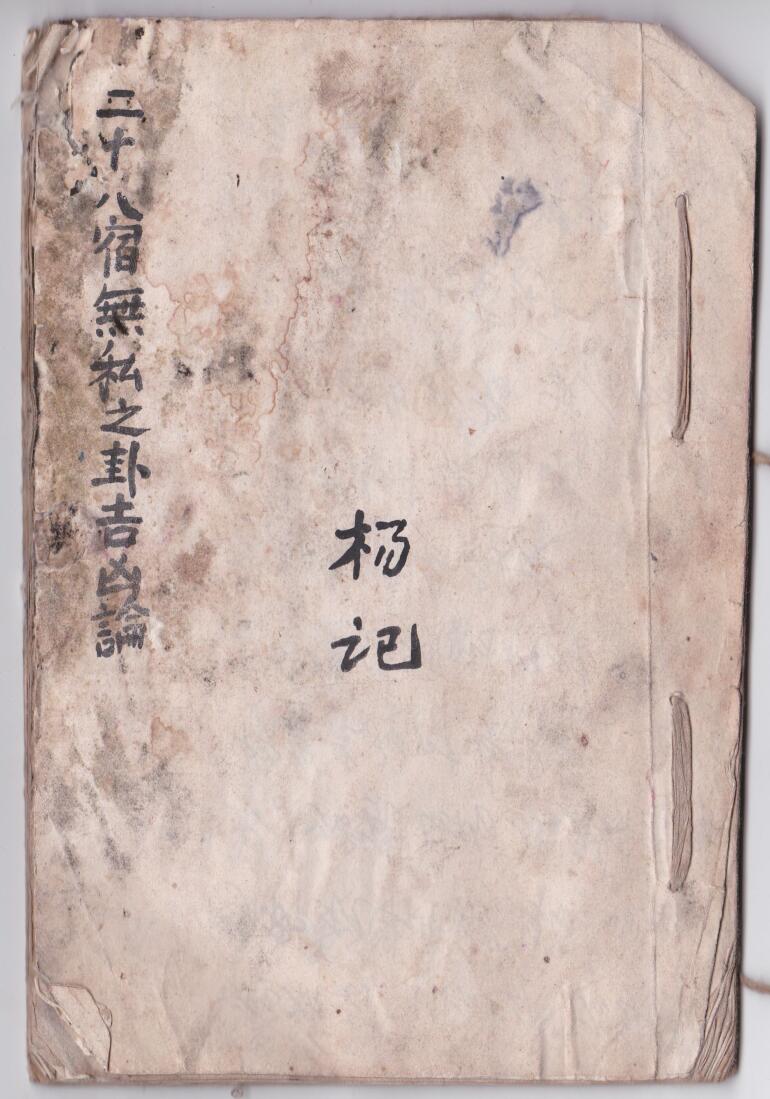 杨记
二十八宿無私之卦吉凶論